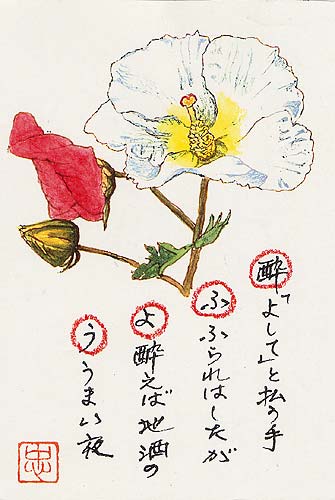 酔「よして」と私の手
ふ ふられはしたが
よ 酔えば地酒の
う うまい夜
忠